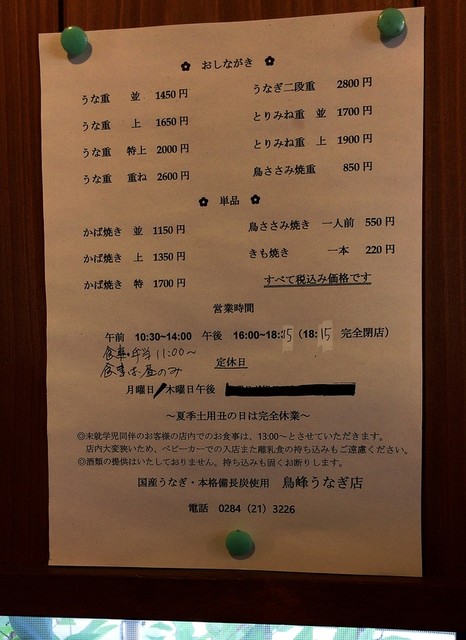 ✿ おしながき ✿
うな重 並 1450円
うな重 上 1650円
うな重 特上 2000円
うな重 重ね 2600円
うなぎ二段重 2800円
とりみね重 並 1700円
とりみね重 上 1900円
鳥ささみ焼重 850円
✿ 単品 ✿
かば焼き 並 1150円
かば焼き 上 1350円
かば焼き 特 1700円
鳥ささみ焼き 一人前 550円
きも焼き 一本 220円
すべて税込み価格です
営業時間
午前 10:30~14:00 午後 16:00~18:15 (18:15 完全閉店)
11:00~
食事は昼のみ
定休日
月曜日/木曜日午後
～夏季土用丑の日は完全休業～
◎未就学児同伴のお客様の店内でのお食事は、13:00～とさせていただきます。
店内大変狭いため、ベビーカーでの入店また離乳食の持ち込みもご遠慮ください。
◎酒類の提供はいたしておりません。持ち込みも固くお断りします。
国産うなぎ・本格備長炭使用 鳥峰うなぎ店
電話 0284（21）3226